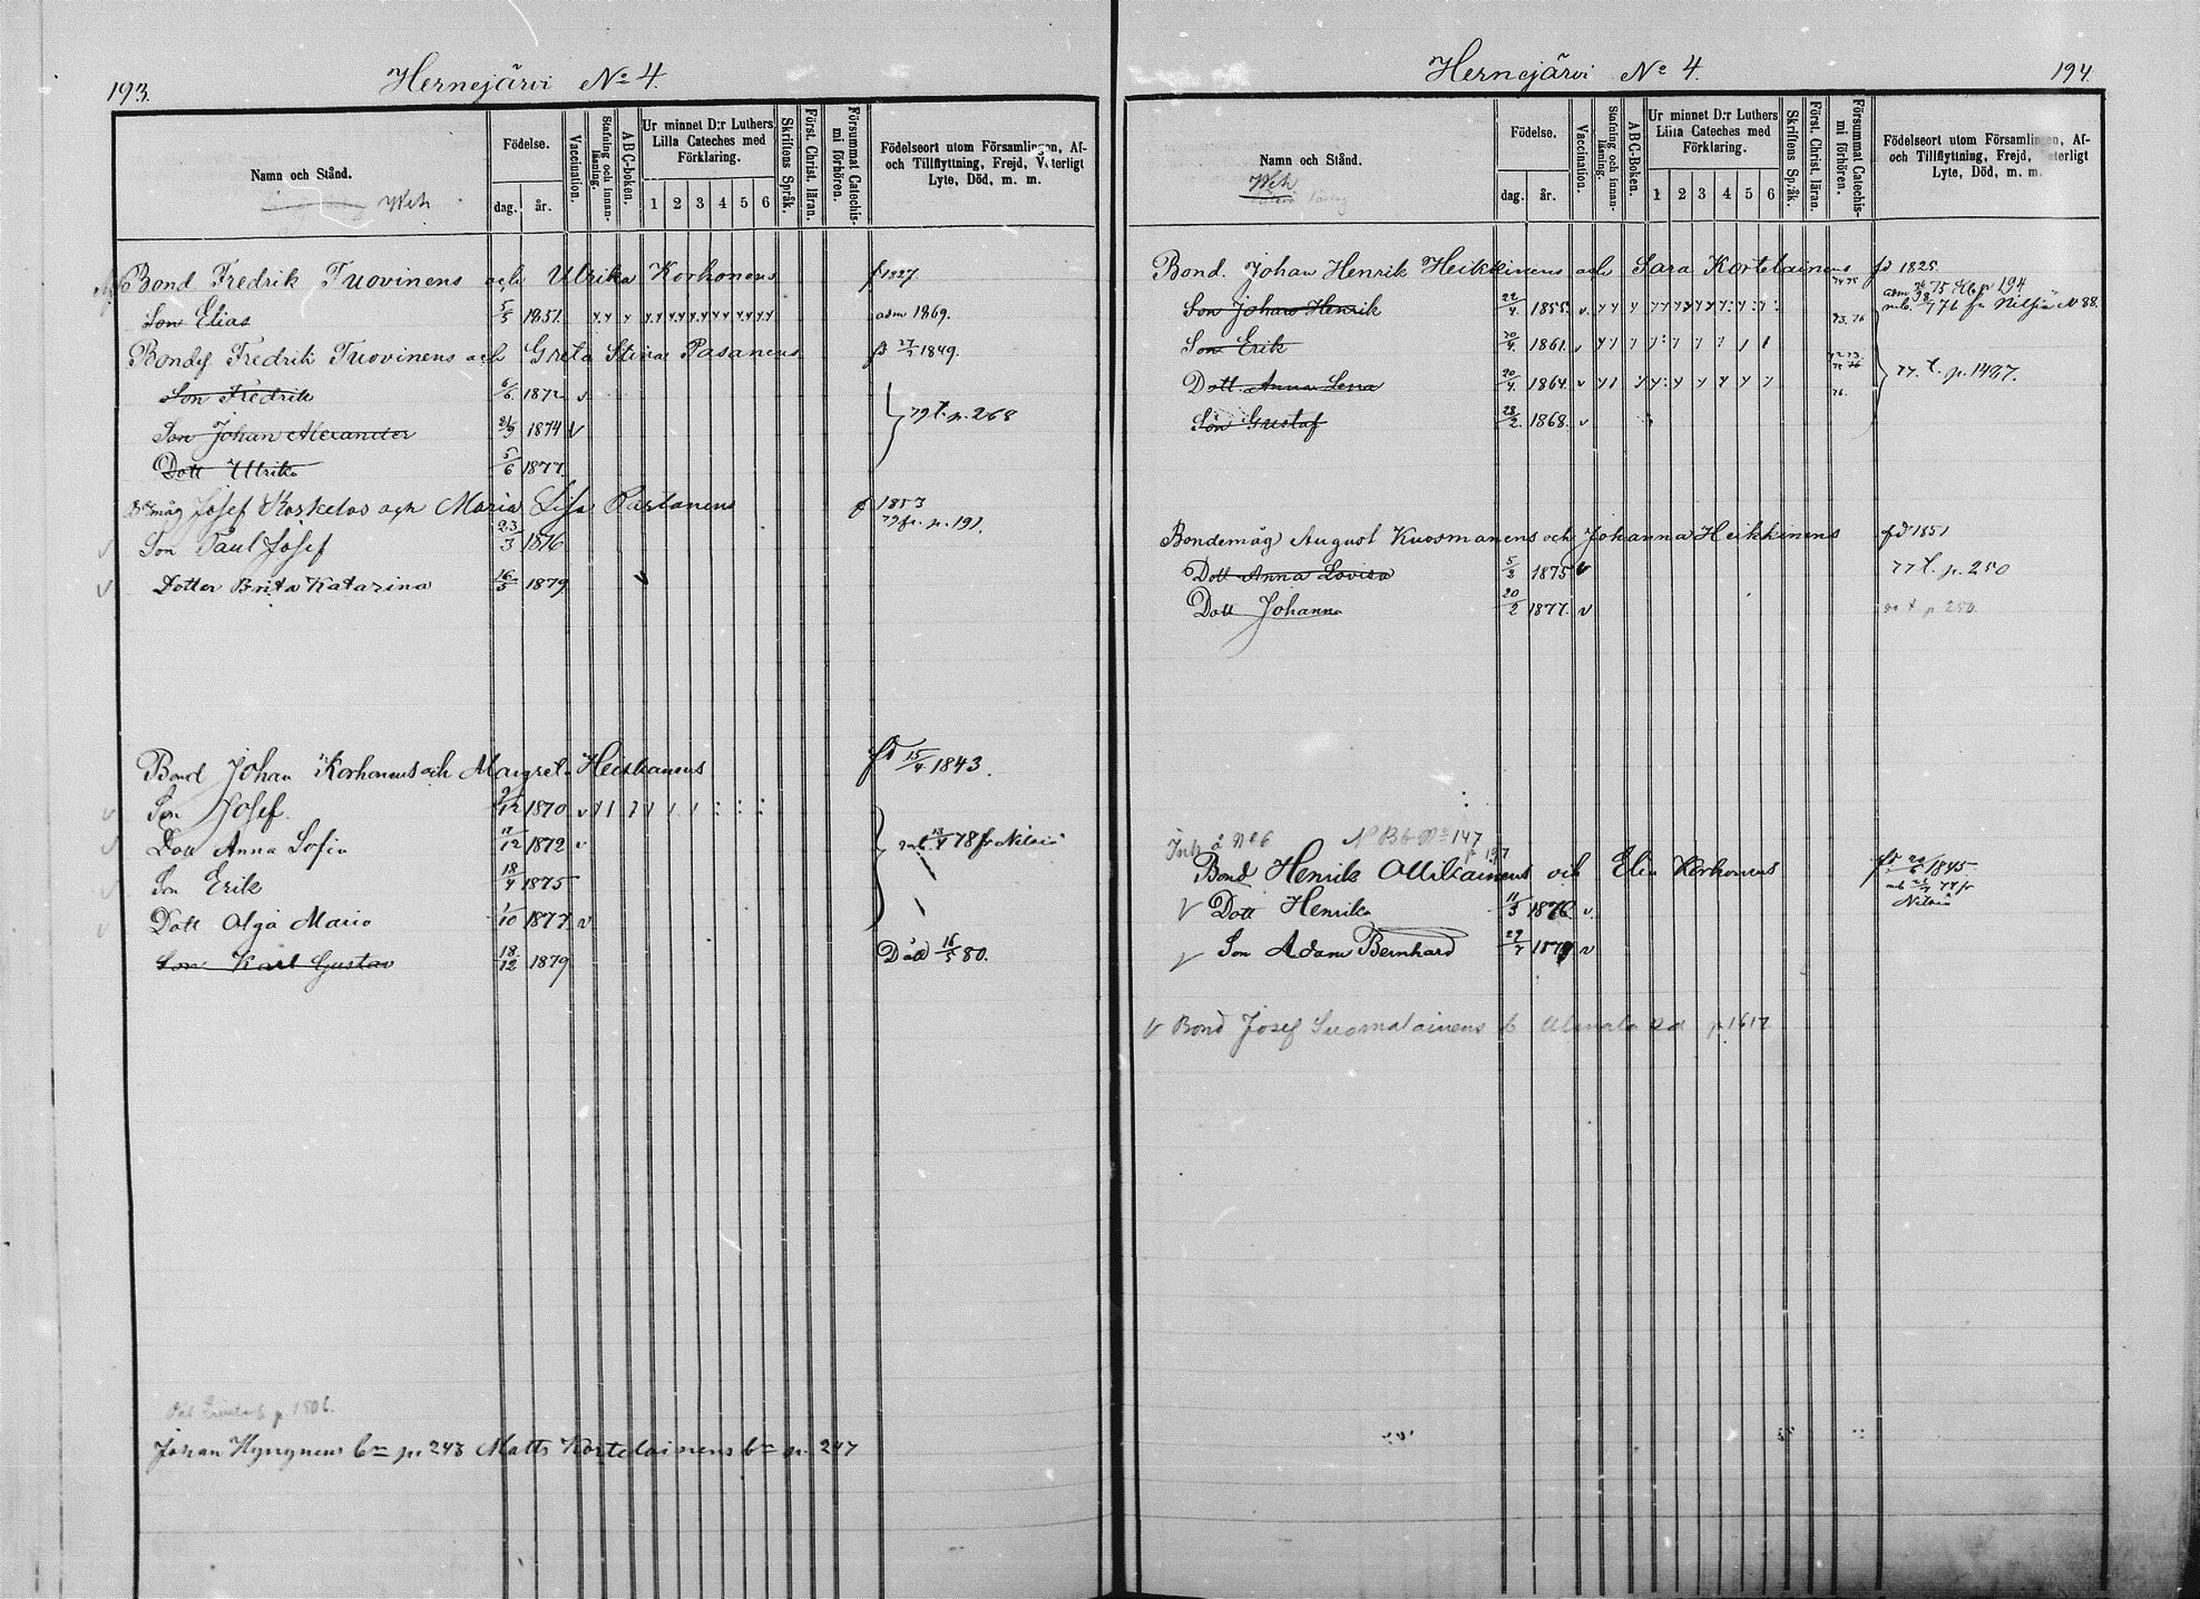 193.
Hernejärvi No 4.
Namn och Stånd.
Födelse.
dag.
år.
Vaccination.
Stafning och innan-läsning.
ABC-boken.
Ur minnet D:r Luthers Lilla Cateches med Förklaring.
1 2 3 4 5 6
Skriftens Språk.
Först. Christ. läran.
Försummat Catechis-mi förhören.
Födelseort utom Församlingen, Af- och Tillflyttning, Frejd, Veterligt Lyte, Död, m. m.
Bond Fredrik Tuovinens och Ulrika Korhonens f 1827
Son Elias 5/5 1851. adm 1869.
Fredrik Tuovinens och Greta Stina Pasanens 1849.
Son Fredrik 6/6 1872 v
Son Johan Alexander 21/9 1874 v 79 t. p. 268
Dott Ulrika 5/6 1877.
Josef Koskelos och Maria Lisa Partanens 1853
79 fr. p. 191.
Son Paul Josef 23/3 1876
Dotter Brita Katarina 16/5 1879 v
Bond Johan Korhonens och Margret Heiskanens fd 15/4 1843.
Son Josef. 1870 v
Dott Anna Sofia 1872 v 78 fr Nilsiä
Son Erik 18/4 1875
Dott Olga Maria 1/10 1877 v
Son Karl Gustav 18/12 1879 Död 16/5 80.
Johan Hyvynens b= p. 248 Matts Kortelainens b= p. 247
Hernejärvi No 4.
194.
Namn och Stånd.
Födelse.
dag.
år.
Vaccination.
Stafning och innan-läsning.
ABC-Boken.
Ur minnet D:r Luthers Lilla Cateches med Förklaring.
1 2 3 4 5 6
Skriftens Språk.
Först. Christ. läran.
Försummat Catechis-mi förhören.
Födelseort utom Församlingen, Af- och Tillflyttning, Frejd, Veterligt Lyte, Död, m. m.
Bond. Johan Henrik Heikkinens och Sara Kortelainens fd 1825.
Son Johan Henrik 22/4. 1855. v. fr Nilsiä N 88.
Son Erik 1861. v
Dott. Anna Lena 20/4. 1864. v 77. t. p. 1487.
Son Gustaf 28/2. 1868. v
Bondemåg August Kuosmanens och Johanna Heikkinens fd 1851
Dott Anna Lovisa 5/2 1875 v 77 t. p. 250
Dott Johanna 20/2 1877. v t p 250.
å No 6
147
Bond Henrik Ollilainens och Elin Korhonens fd 20/6 1845.
Nilsiä
Dott Henrika 11/3 1876 v.
Son Adam Bernhard 29/7 v
Bond Josef Suomalainens p 1617